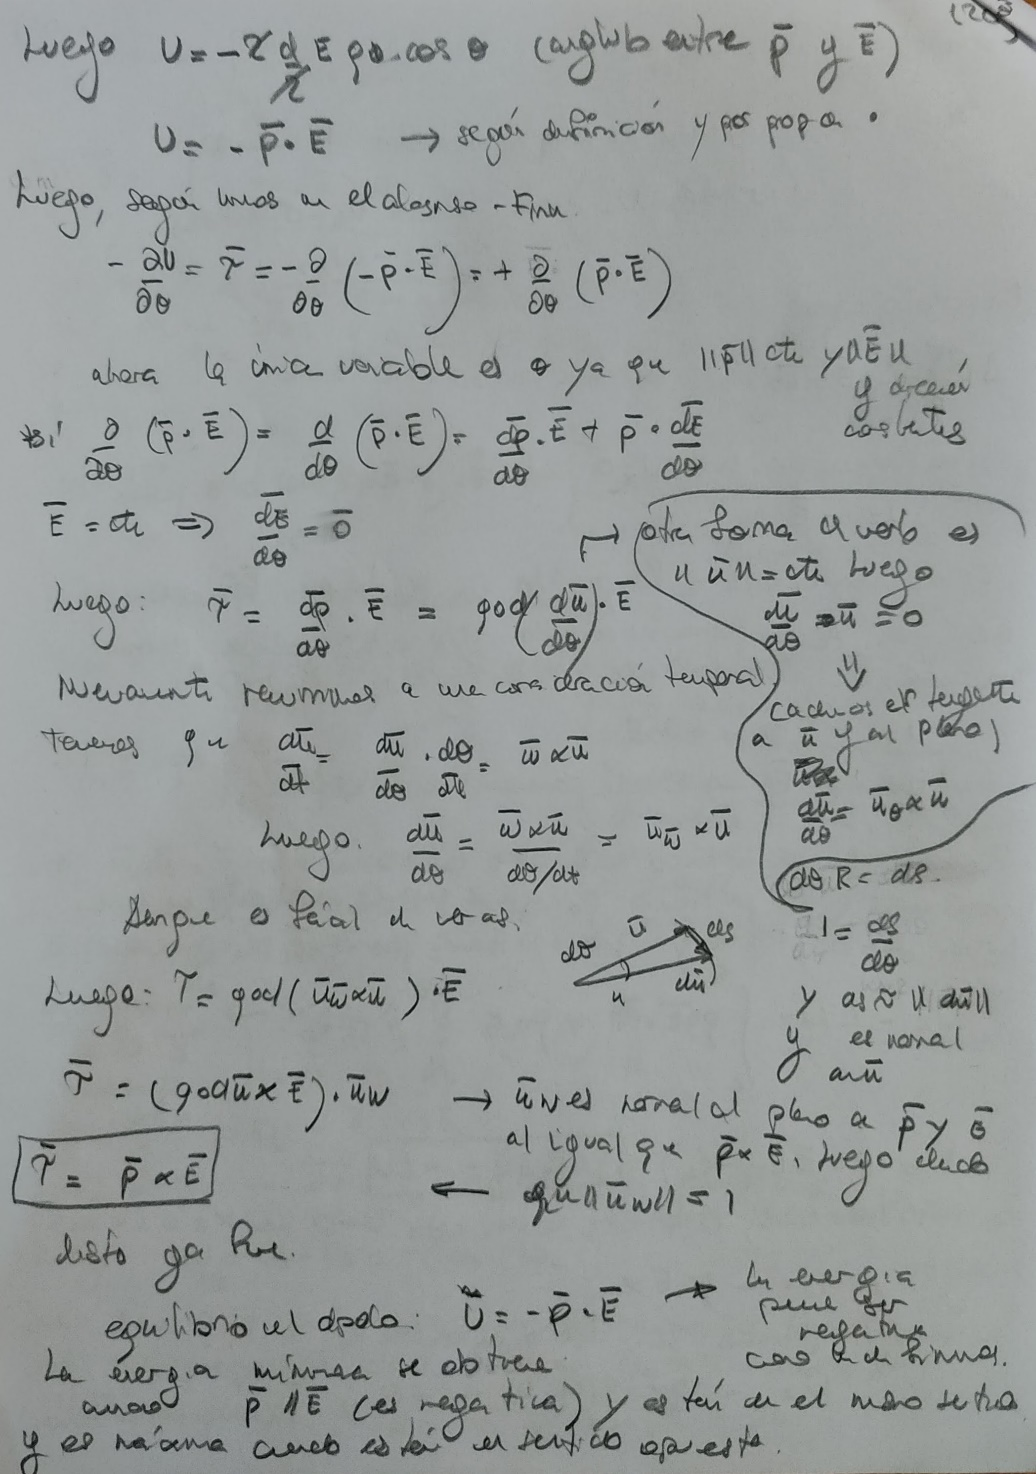 Luego U = -2 d/2 E q₀·cos θ (angulo entre p̄ y Ē)
U = - p̄·Ē → según definición y por prop a •
Luego, según vimos en el
-∂U/∂θ = τ̄ = -∂/∂θ (-p̄·Ē) = + ∂/∂θ (p̄·Ē)
ahora la única variable es θ ya que ||p̄|| cte y ||Ē||
y dirección
constantes
∂/∂θ (p̄·Ē) = d/dθ (p̄·Ē) = dp̄/dθ · Ē + p̄ · dĒ/dθ
Ē = cte ⇒ dĒ/dθ = 0̄
Luego: τ̄ = dp̄/dθ · Ē = q₀d (dū/dθ) · Ē
→ otra forma de verlo es
||ū|| = cte luego
dū/dθ · ū = 0
⇓
es tangente
a ū y al plano)
dū/dθ = ū_θ × ū
dθ R = ds.
1 = ds/dθ
y ds ≈ ||dū||
y es normal
a ū
Nuevamente recurrimos a una consideración temporal
Tenemos que dū/dt = dū/dθ · dθ/dt = w̄ × ū
Luego. dū/dθ = w̄×ū / dθ/dt = ū_w̄ × ū
Aunque es fácil de ver así.
dθ ū ds
u dū
Luego: τ = q₀d (ū_w̄ × ū) · Ē
τ̄ = (q₀d ū × Ē) · ū_w → ū_w es normal al plano a p̄ y Ē
al igual que p̄ × Ē, luego dado
τ̄ = p̄ × Ē ← que ||ū_w|| = 1
Listo ya fue.
equilibrio del dipolo: U = - p̄·Ē → La energía
puede ser
negativa
como la definimos.
La energía mínima se obtiene
cuando p̄ // Ē (es negativa) y están en el mismo sentido
y es máxima cuando están en sentido opuesto.